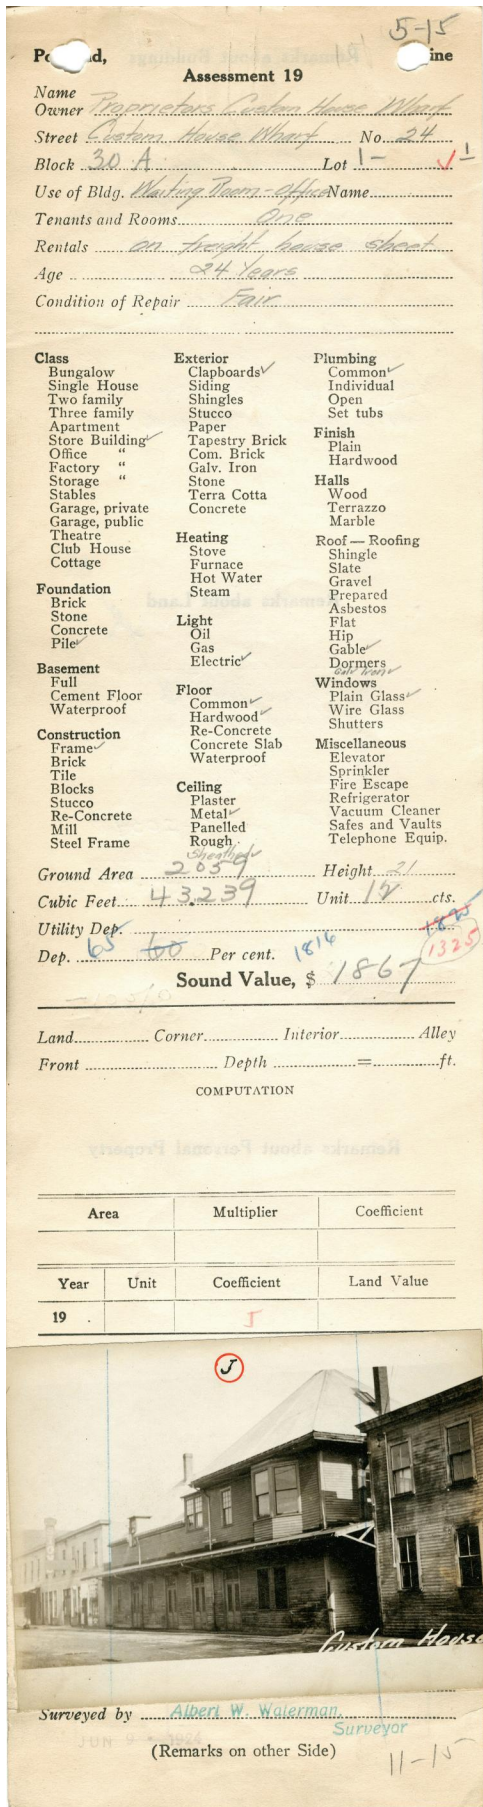 5-15
Po nd, ine
Assessment 19
Name
Owner Proprietors Custom House Wharf
Street Custom House Wharf No. 24
Block 30 A Lot 1- 1
Use of Bldg. Waiting Room-office Name
Tenants and Rooms One
Rentals on freight house sheet
Age 24 Years
Condition of Repair Fair
Class
Bungalow
Single House
Two family
Three family
Apartment
Store Building ✓
Office "
Factory "
Storage "
Stables
Garage, private
Garage, public
Theatre
Club House
Cottage
Foundation
Brick
Stone
Concrete
Pile ✓
Basement
Full
Cement Floor
Waterproof
Construction
Frame ✓
Brick
Tile
Blocks
Stucco
Re-Concrete
Mill
Steel Frame
Exterior
Clapboards ✓
Siding
Shingles
Stucco
Paper
Tapestry Brick
Com. Brick
Galv. Iron
Stone
Terra Cotta
Concrete
Heating
Stove
Furnace
Hot Water
Steam
Light
Oil
Gas
Electric ✓
Floor
Common ✓
Hardwood ✓
Re-Concrete
Concrete Slab
Waterproof
Ceiling
Plaster
Metal ✓
Panelled
Rough
Sheathed ✓
Plumbing
Common ✓
Individual
Open
Set tubs
Finish
Plain
Hardwood
Halls
Wood
Terrazzo
Marble
Roof — Roofing
Shingle
Slate
Gravel
Prepared
Asbestos
Flat
Hip
Gable ✓
Dormers
Galv Iron ✓
Windows
Plain Glass ✓
Wire Glass
Shutters
Miscellaneous
Elevator
Sprinkler
Fire Escape
Refrigerator
Vacuum Cleaner
Safes and Vaults
Telephone Equip.
Ground Area 2059 Height 21
Cubic Feet 43.239 Unit 12 cts.
Utility Dep.
Dep. 65 60 Per cent. 1816 1325
Sound Value, $ 1867
Land Corner Interior Alley
Front Depth = ft.
COMPUTATION
Area Multiplier Coefficient
Year Unit Coefficient Land Value
19 . J
J
Custom House
Surveyed by Albert W. Waterman,
Surveyor
(Remarks on other Side)
11-15